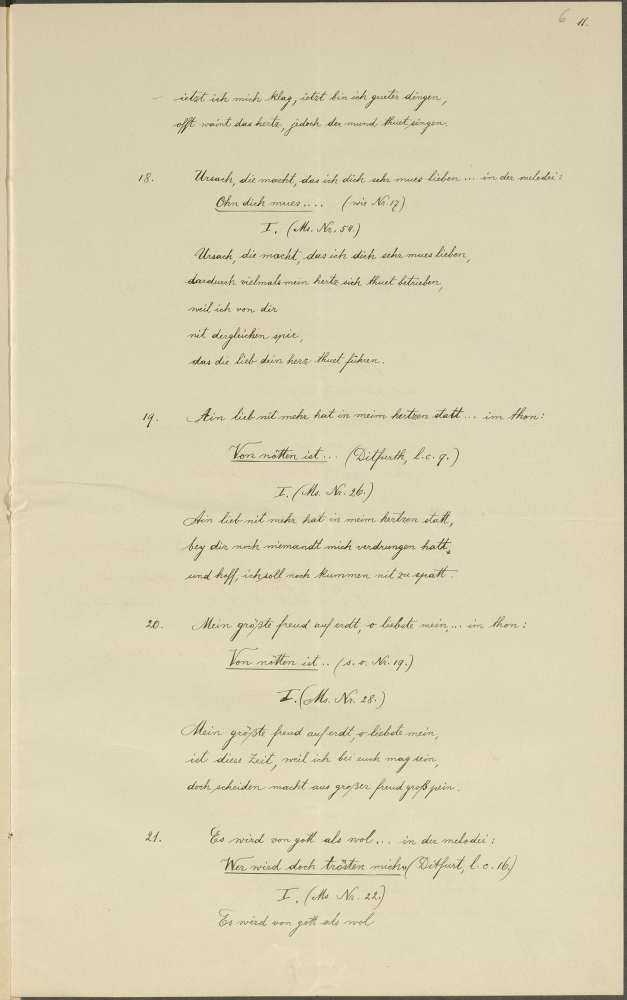 6 11.
ietzt ich mich klag, ietzt bin ich gueter dingen,
offt waint das hertz, jedoch der mund thuet singen.
18. Ursach, die macht, das ich dich sehr mues lieben ... in der melodei:
Ohn dich mues .... (wie Nr. 17)
I. (Ms. Nr. 54.)
Ursach, die macht, das ich dich sehr mues lieben,
dardurch vielmals mein hertz sich thuet betrieben,
weil ich von dir
nit dergleichen spir,
das die lieb dein herz thuet führen.
19. Ain lieb nit mehr hat in meim hertzen statt ... im thon:
Von nötten ist ... (Ditfurth, l. c. 9.)
I. (Ms. Nr. 26.)
Ain lieb nit mehr hat in meim hertzen statt,
bey dir noch niemandt mich verdrungen hatt,
und hoff, ich soll noch kummen nit zu spatt.
20. Mein größte freud auf erdt, o liebste mein, ... im thon:
Von nötten ist .. (s. o. Nr. 19.)
I. (Ms. Nr. 28.)
Mein größte freud auf erdt, o liebste mein,
ist diese Zeit, weil ich bei euch mag sein,
doch scheiden macht aus großer freud groß pein.
21. Es wird von gott als wol ... in der melodei:
Wer wird doch trösten mich (Ditfurt, l. c. 16.)
I. (Ms. Nr. 22.)
Es wird von gott als wol